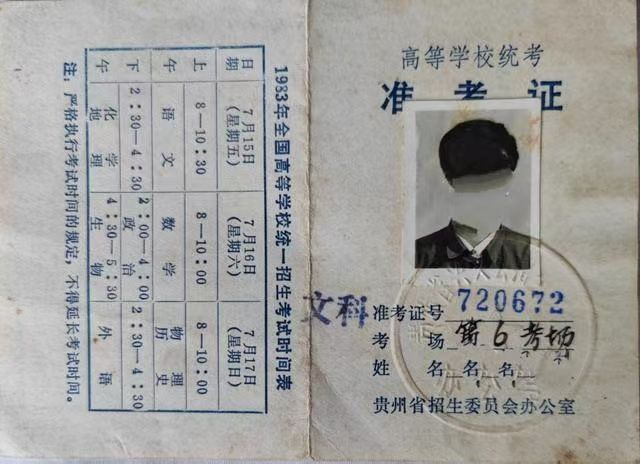 1983年全国高等学校统一招生考试时间表
日期
7月15日
(星期五)
7月16日
(星期六)
7月17日
(星期日)
上午
8—10:30
语文
8—10:00
数学
8—10:00
物理
历史
下午
2:30—4:30
化学
地理
2:00—4:00
政治
4:30—5:30
生物
2:30—4:30
外语
注:严格执行考试时间的规定,不得延长考试时间。
高等学校统考
准考证
文科
准考证号 720672
考 场 第6考场
姓 名
贵州省招生委员会办公室